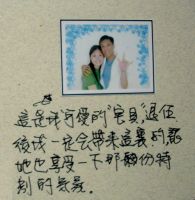 這是我可愛的"宝貝",退伍
後我一定会帶來這裏的,讓
她也享受一下那份特
別的氣氛.